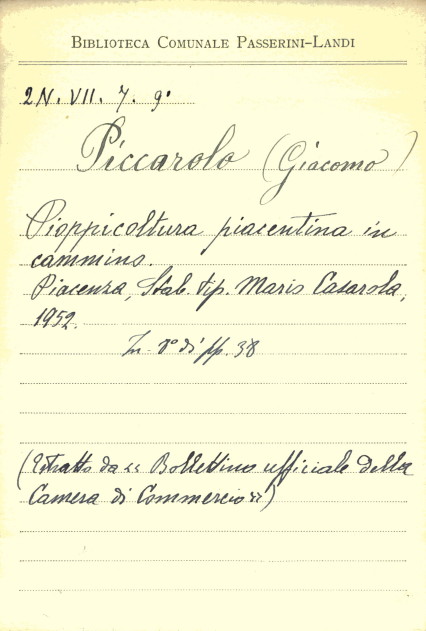 BIBLIOTECA COMUNALE PASSERINI-LANDI
2N. VII. 7. 9º
Piccarolo (Giacomo)
Pioppicoltura piacentina in
cammino.
Piacenza, Stab. tip. Mario Casarola,
1952.
In-8º di pp. 38
(Estratto da "Bollettino ufficiale della
Camera di Commercio")